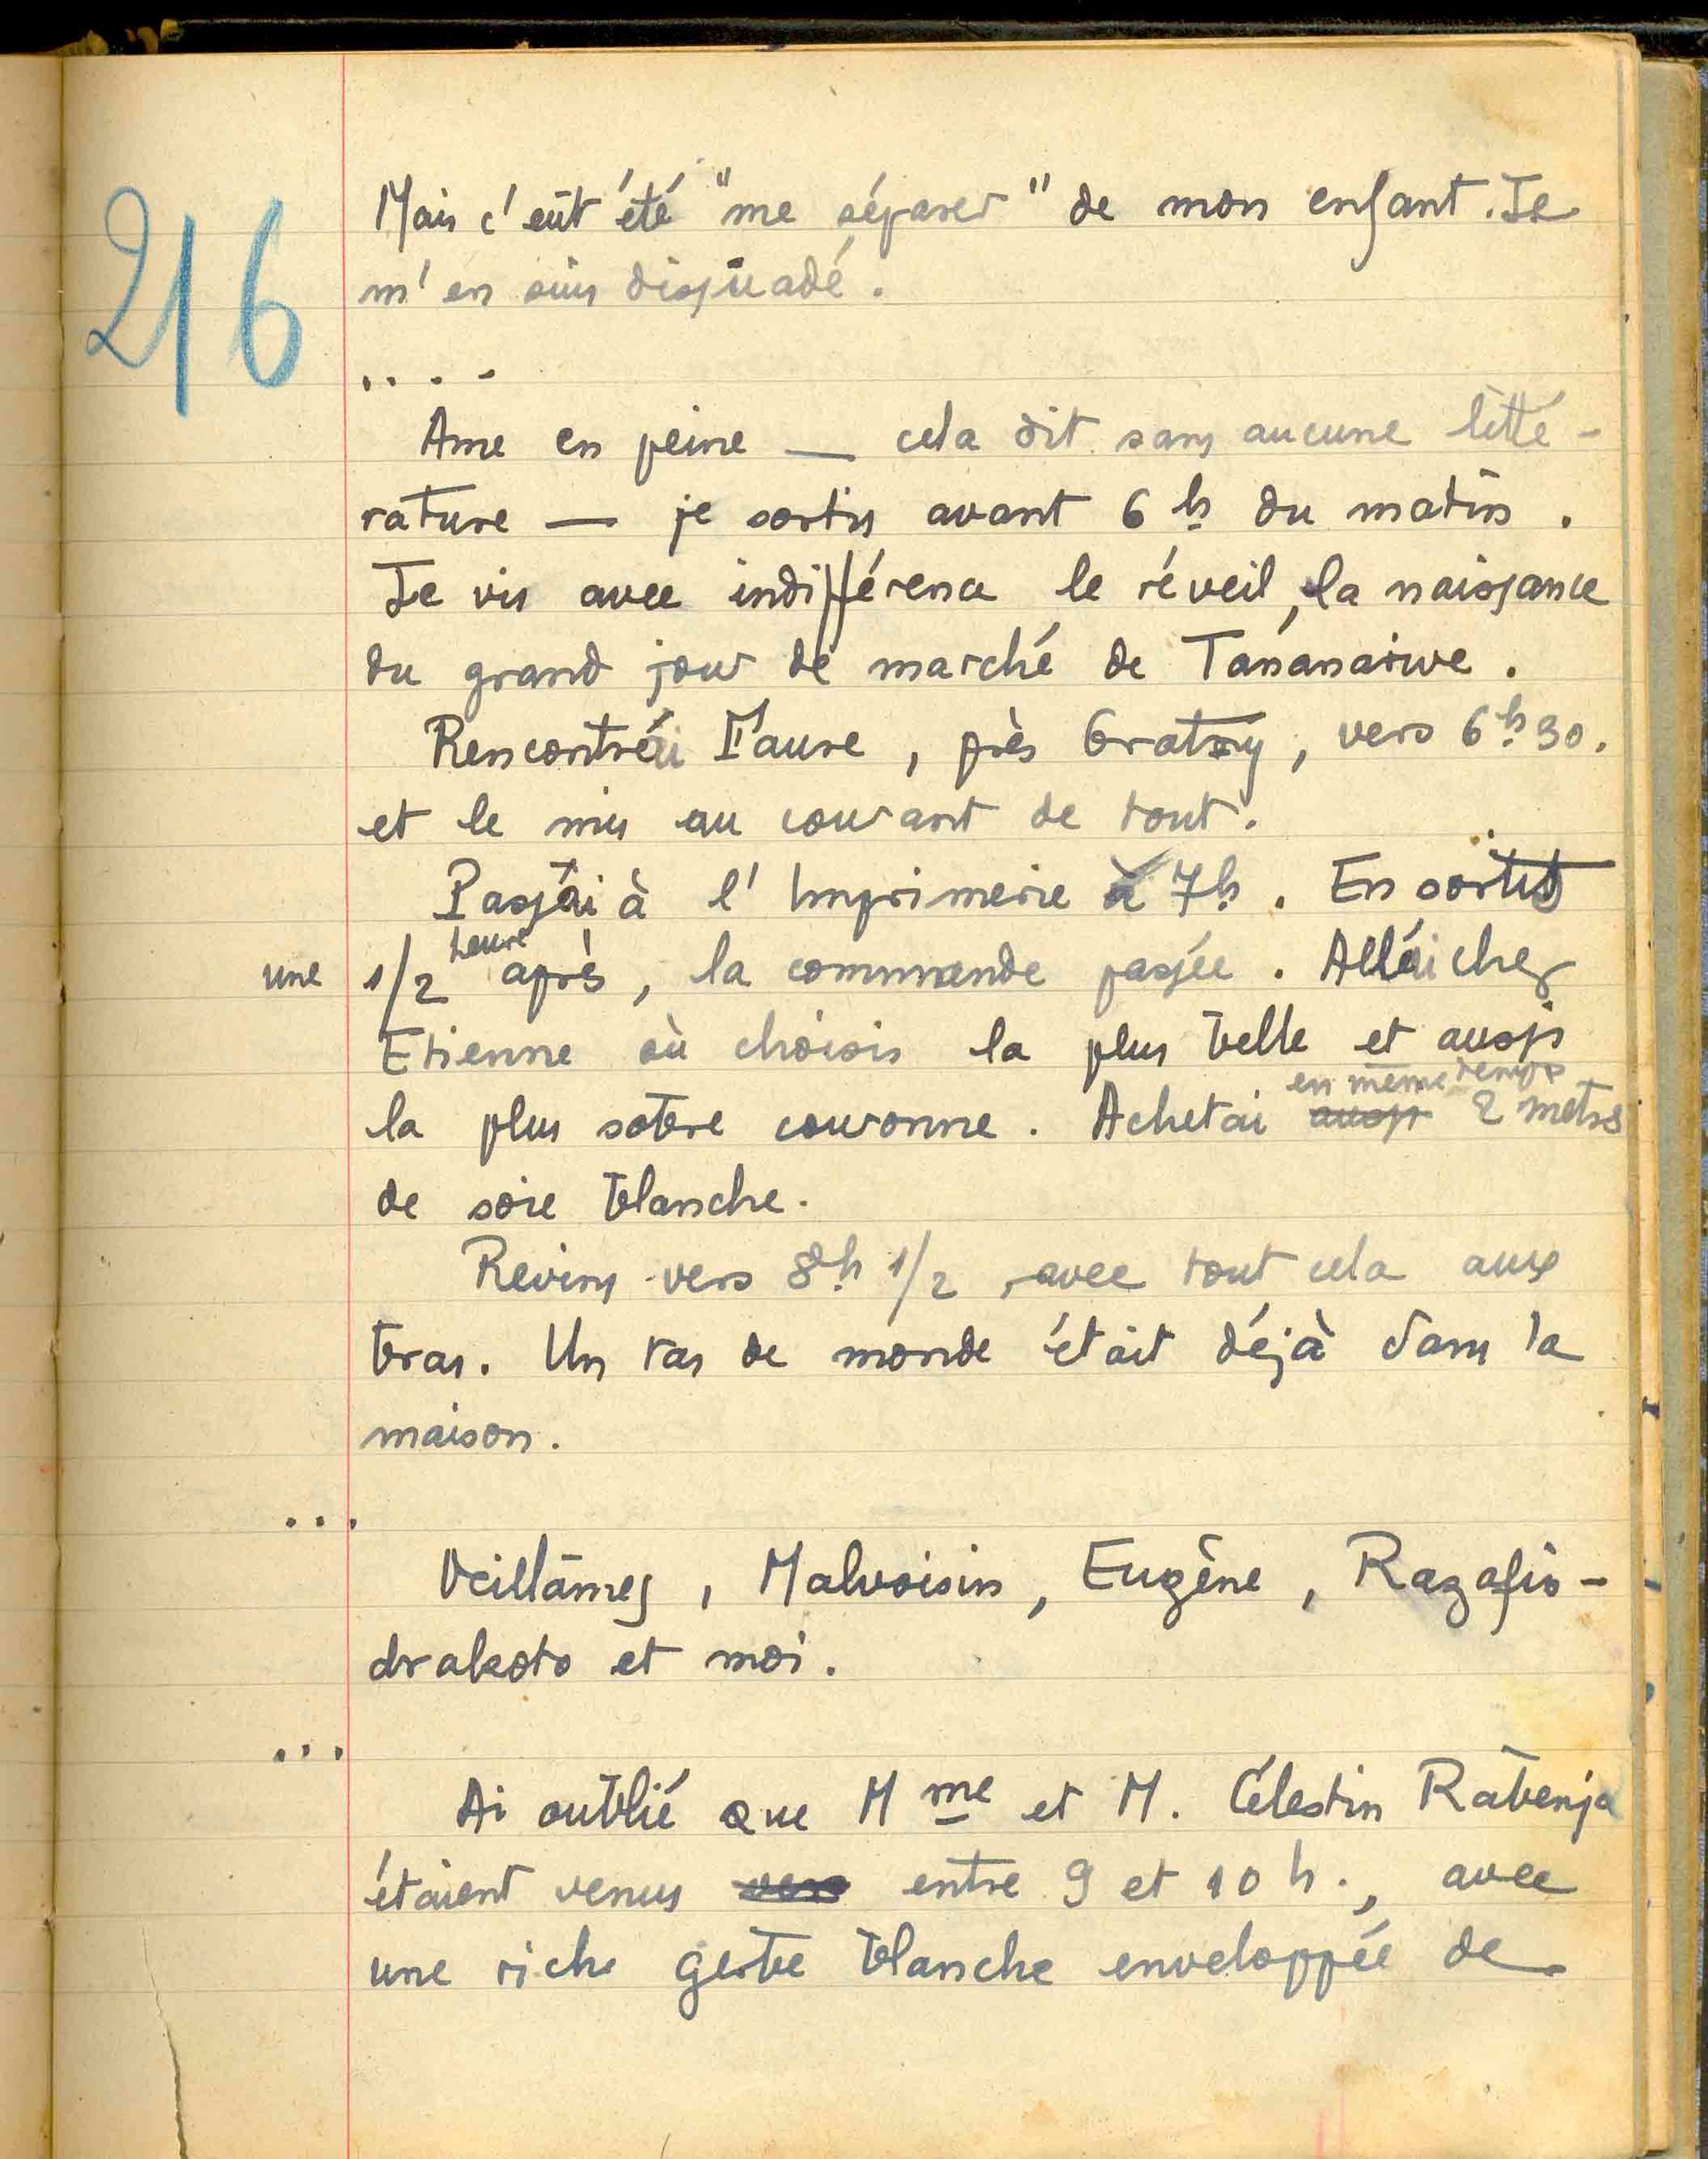 216
Mais c'eût été "me séparer" de mon enfant. Je
m'en suis dissuadé.
....
Ame en peine — cela dit sans aucune litté-
rature — je sortis avant 6 h du matin.
Je vis avec indifférence le réveil, la naissance
du grand jour de marché de Tananarive.
Rencontrai Faure, près Gratry, vers 6 h 30.
et le mis au courant de tout.
Passai à l'Imprimerie à 7h. En sortis
une 1/2 heure après, la commande passée. Allai chez
Etienne où choisis la plus belle et aussi
la plus sobre couronne. Achetai aussi en même temps 2 mètres
de soie blanche.
Revins vers 8h 1/2, avec tout cela aux
bras. Un tas de monde était déjà dans la
maison.
...
Veillâmes, Malvoisin, Eugène, Razafin-
drakoto et moi.
...
Ai oublié que Mme et M. Célestin Rabenja
étaient venus vers entre 9 et 10 h., avec
une riche gerbe blanche enveloppée de